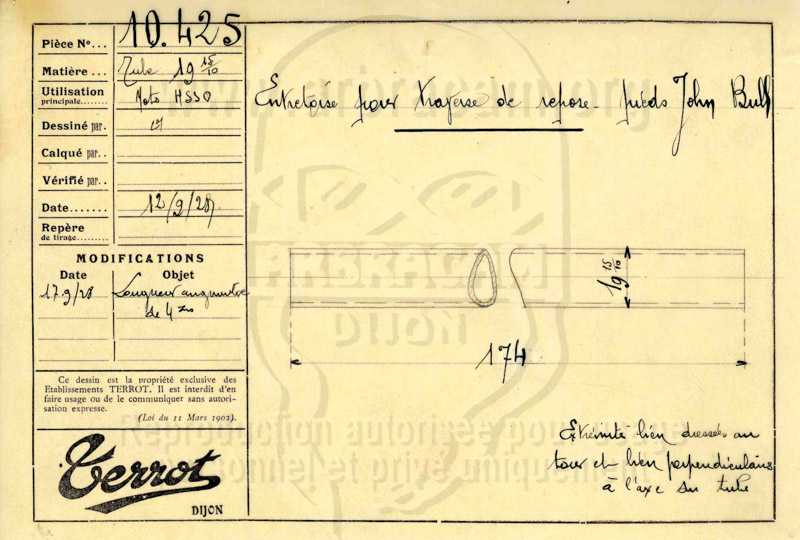 Pièce No... 10.425
Matière... Tube 19 15/10
Utilisation principale....... Moto HSSO
Dessiné par.
Calqué par..
Vérifié par..
Date....... 12/9/28
Repère de tirage.........
MODIFICATIONS
Date Objet
17 9/28 Longueur augmentée
de 4 m
Ce dessin est la propriété exclusive des
Etablissements TERROT. Il est interdit d'en
faire usage ou de le communiquer sans autori-
sation expresse.
(Loi du 11 Mars 1902).
Terrot
DIJON
Entretoise pour traverse de repose-pieds John Bull
19 15/10
174
Extrémité bien dressée au
tour et bien perpendiculaire
à l'axe du tube
ABRACAM
DIJON
Reproduction autorisée pour usage
personnel et privé uniquement